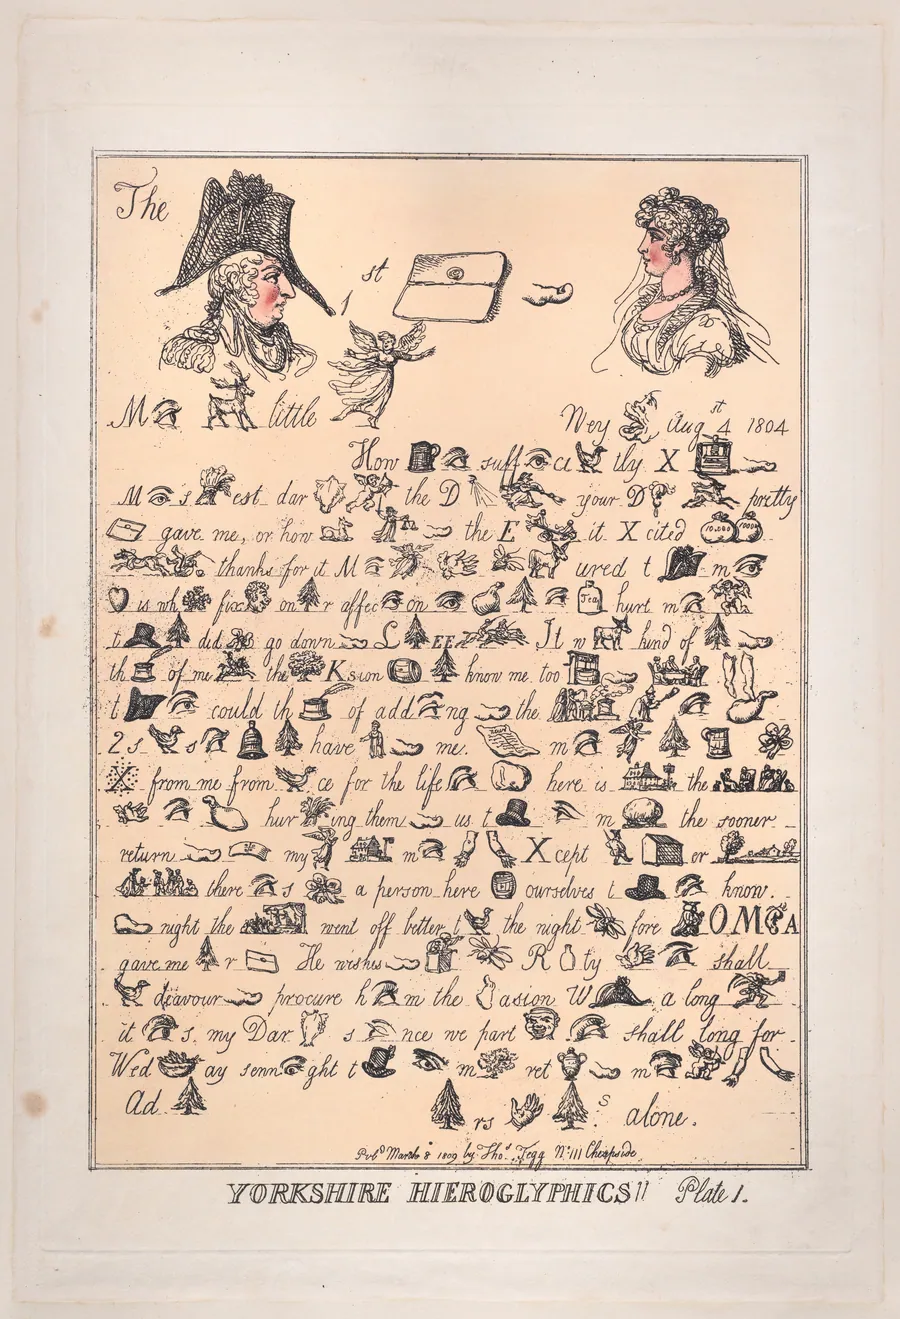 The
1st
M little
Wey Augst 4 1804
How suff ci tly X
M s est dar the D your D pretty
gave me, or how the E it X cited 10,000 1000
thanks for it M ured t m
is wh fix on r affec on Tea hurt m
t did go down L EE It w kind of
th of me the K sion know me too
t could th of add ng the
2 s s have me. m
X from me from ce for the life here is the
hur ing them us t m the sooner
return my m X cept er
there s a person here ourselves t know.
night the went off better t the night fore OM A
gave me r He wishes R ty shall
deavour procure h m the asion W a long
it s. my Dar s nce we part shall long for
Wed ay senn ght t m ret m
Ad rs s alone.
Pubd March 8 1809 by Thos Tegg No 111 Cheapside
YORKSHIRE HIEROGLYPHICS!! Plate 1.